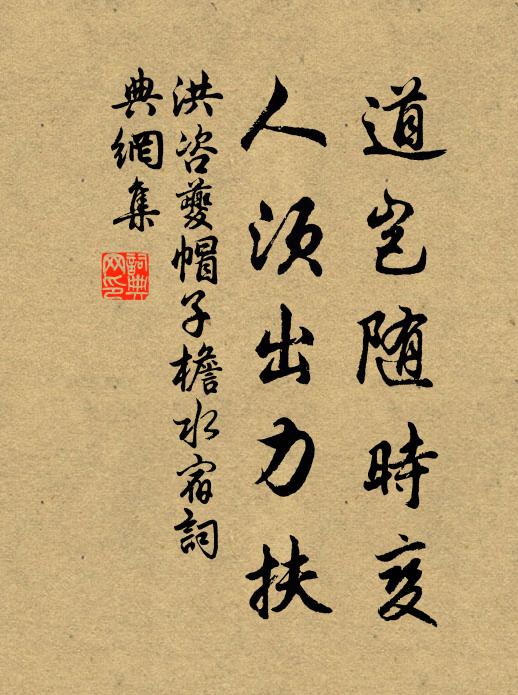 道岂随時变
人须出力扶
洪咨夔帽子檐水宿詞
典網集
詞典
网印